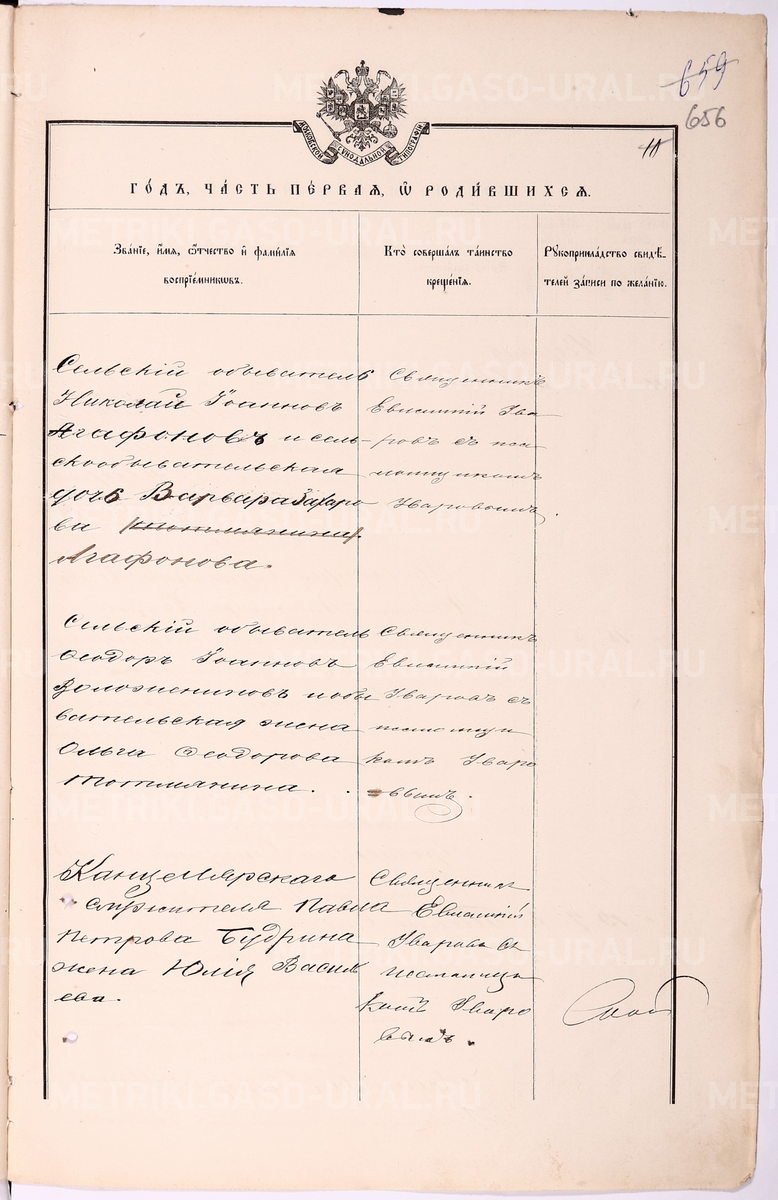 659
656
МОСКОВСКОЙ СѴНОДАЛЬНОЙ ТИПОГРАФІИ
10
ГО́ДЪ, ЧА́СТЬ ПЕ́РВАЯ, Ѿ РОДИ́ВШИХСЯ.
Зва́ніе, и́мя, ѻ҆́тчество и҆ фами́лія
воспріе́мникѡвъ.
Кто̀ соверша́лъ та́инство
креще́нія.
Рꙋкоприкла́дство свидѣ́-
телей за́писи по жела́нію.
Сельскій обыватель
Николай Іоанновъ
Агафоновъ и сель-
скообывательская
дочь Варвара Захаро
ва
Агафонова.
Священникъ
Евлампій Ува
ровъ съ пса
ломщикомъ
Уваровымъ.
Сельскій обыватель
Ѳеодоръ Іоанновъ
и обы
вательская жена
Ольга Ѳеодорова
Тотмянина.
Священникъ
Евлампій
Уваровъ съ
псаломщи
комъ Уваро
вымъ.
Канцелярскаго
служителя Павла
Петрова Будрина
жена Юлія Василь
ева.
Священник
Евлампій
Уваровъ съ
псаломщи
комъ Уваро
вымъ.
METRIKI.GASO-URAL.RU